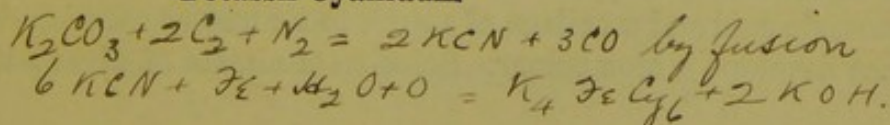 K₂CO₃ + 2C₂ + N₂ = 2KCN + 3CO by fusion
6 KCN + Fe + H₂O + O = K₄FeCy₆ + 2KOH.